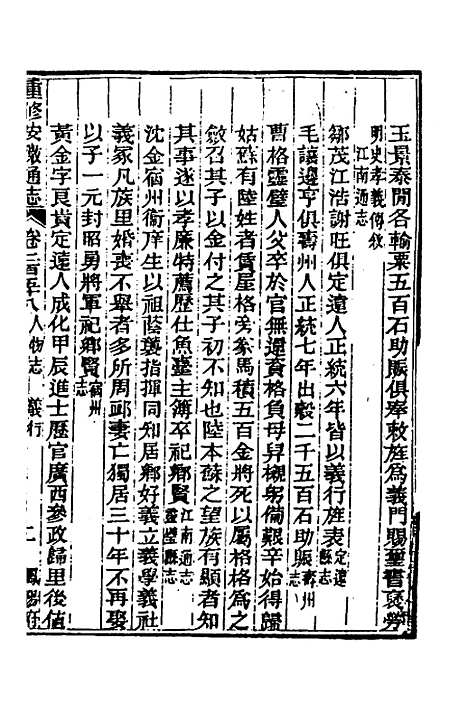 玉景泰閒各輸粟五百石助賑俱奉敕旌爲義門賜璽書褒勞
明史孝義傳敘
江南通志
鄒茂江浩謝旺俱定遠人正統六年皆以義行旌表定遠縣志
毛讓邊亨俱壽州人正統七年出穀二千五百石助賑壽州志
曹格靈璧人父卒於官無還資格負母舁櫬躬備艱辛始得歸
姑蘇有陸姓者賃屋格旁爹馬積五百金將死以屬格格爲之
斂召其子以金付之其子初不知也陸本蘇之望族有顯者知
其事遂以孝廉特薦歷仕魚臺主簿卒祀鄉賢江南通志靈璧縣志
沈金宿州衞庠生以祖蔭襲指揮同知居鄉好義立義學義社
義冢凡族里婚喪不舉者多所周卹妻亡獨居三十年不再娶
以子一元封昭勇將軍祀鄉賢宿州志
黃金字良貴定遠人成化甲辰進士歷官廣西參政歸里後値
重修安徽通志 卷二百五十八 人物志 義行 二 鳳陽府